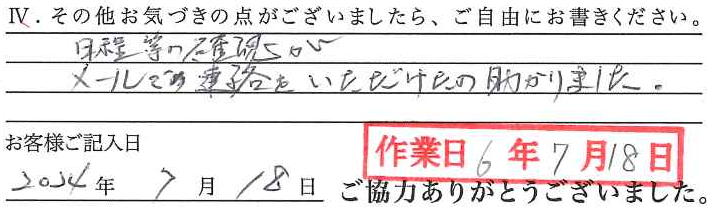 Ⅳ．その他お気づきの点がございましたら、ご自由にお書きください。
日程等の確認
メールでの連絡をいただけたの助かりました。
お客様ご記入日
作業日 6年7月18日
2024年 7月 18日 ご協力ありがとうございました。